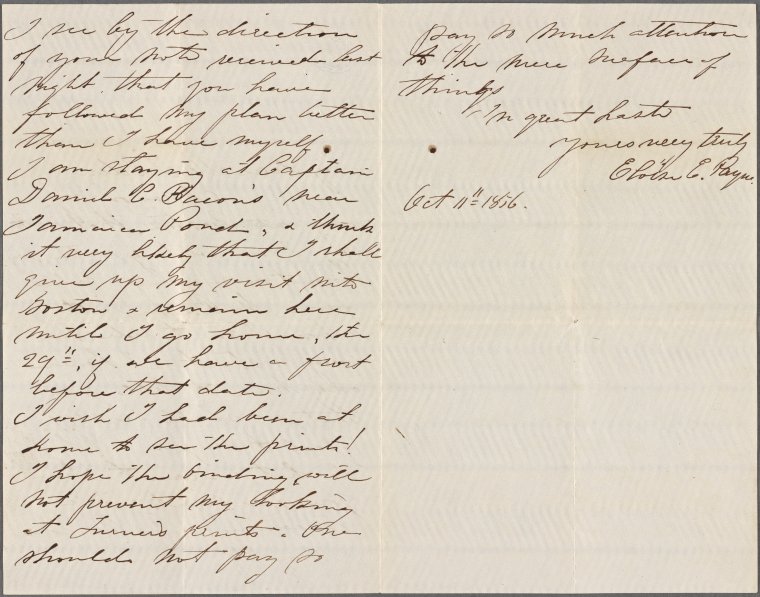 I see by the direction
of your note received last
night that you have
followed my plan better
than I have myself
I am staying at Captain
Daniel C. Bacon's near
Jamaica Pond, & think
it very likely that I shall
give up my visit into
Boston & remain here
until I go home, the
29", if we have a frost
before that date.
I wish I had been at
home to see the prints!
I hope the binding will
not prevent my looking
at Turner's prints. One
should not pay so
pay so much attention
to the mere surface of
things
In great haste
Yours very truly
Eloïse E. Payne.
Oct 11" 1856.